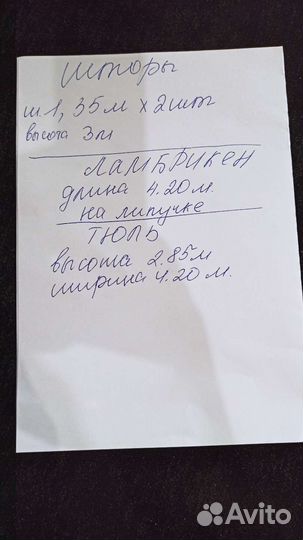 Шторы
ш 1,35м х 2шт
высота 3м
ЛАМБРИКЕН
длина 4.20м.
на липучке
ТЮЛЬ
высота 2.85м
ширина 4.20м.
Avito